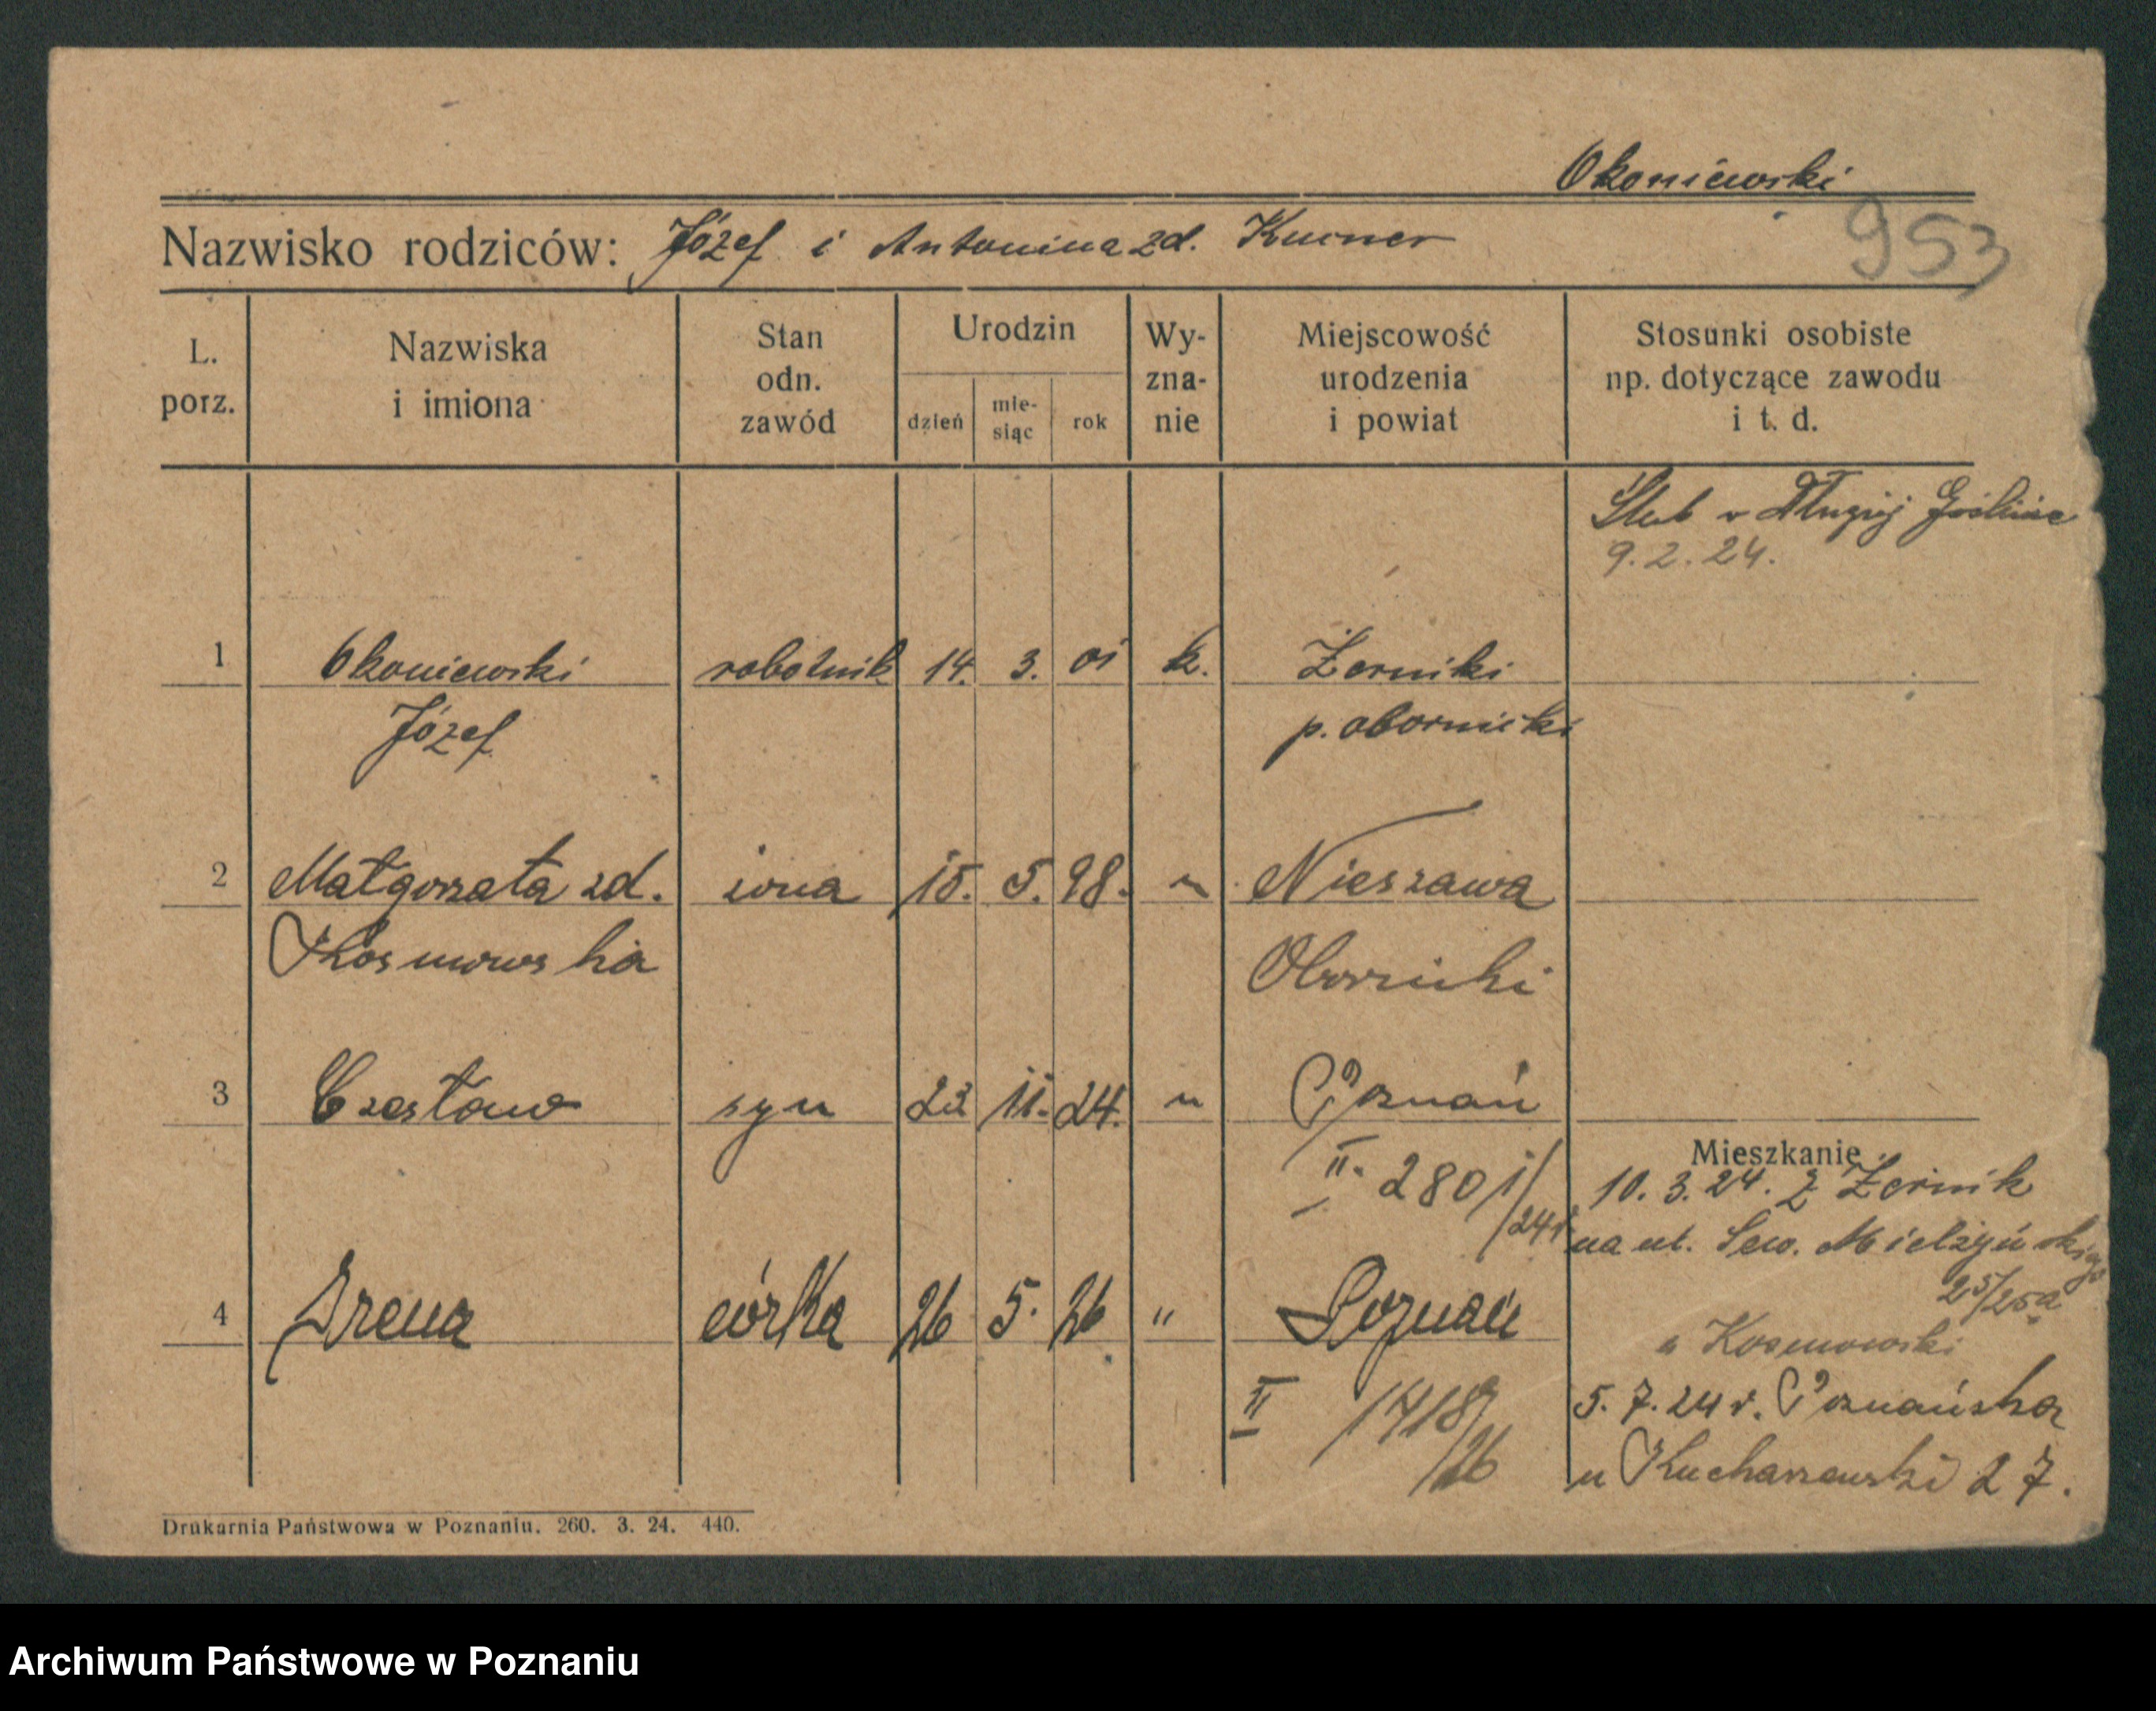 Okoniewski
953
Nazwisko rodziców: Józef i Antonina zd. Kurner
L. porz.
Nazwiska i imiona
Stan odn. zawód
Urodzin
dzień
mie-siąc
rok
Wy-zna-nie
Miejscowość urodzenia i powiat
Stosunki osobiste np. dotyczące zawodu i t. d.
Ślub w Długiej Goślinie
9.2.24.
1 Okoniewski robotnik 14. 3. 01 k. Żerniki
Józef p. obornicki
2 Małgorzata zd. żona 15. 5. 98. " Nieszawa
Kosmowska Obornicki
3 Czesław syn 23 11. 24. " Poznań
II. 2801/24
Mieszkanie
10. 3. 24. z Żernik
na ul. Sew. Mielżyńskiego
25/25a
u Kosmowski
4 Irena córka 26 5. 26 " Poznań
II 1418/26
5. 7. 24 r. Poznańska
u Kucharzewski 27.
Drukarnia Państwowa w Poznaniu. 260. 3. 24. 440.
Archiwum Państwowe w Poznaniu